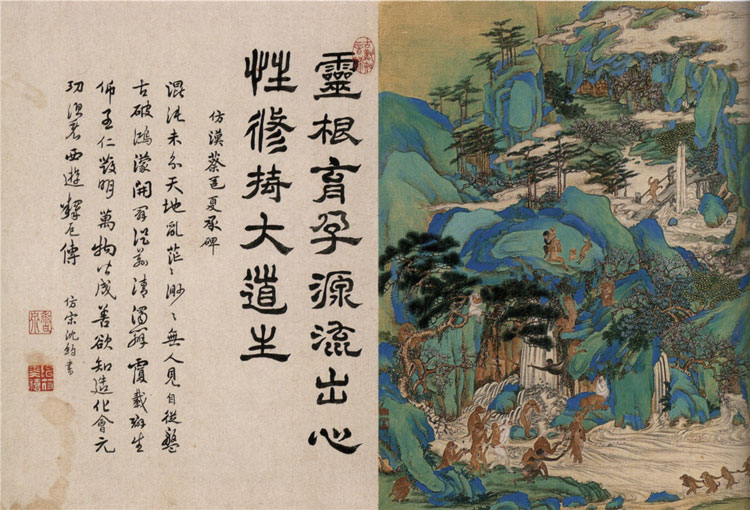 靈根育孕源流出心
性修持大道生
仿漢蔡邕夏承碑
混沌未分天地亂茫々渺々無人見自從盤
古破鴻濛開闢從茲清濁辨覆載群生
仰至仁發明萬物皆成善欲知造化會元
功須看西遊釋厄傳
仿宋沈約書